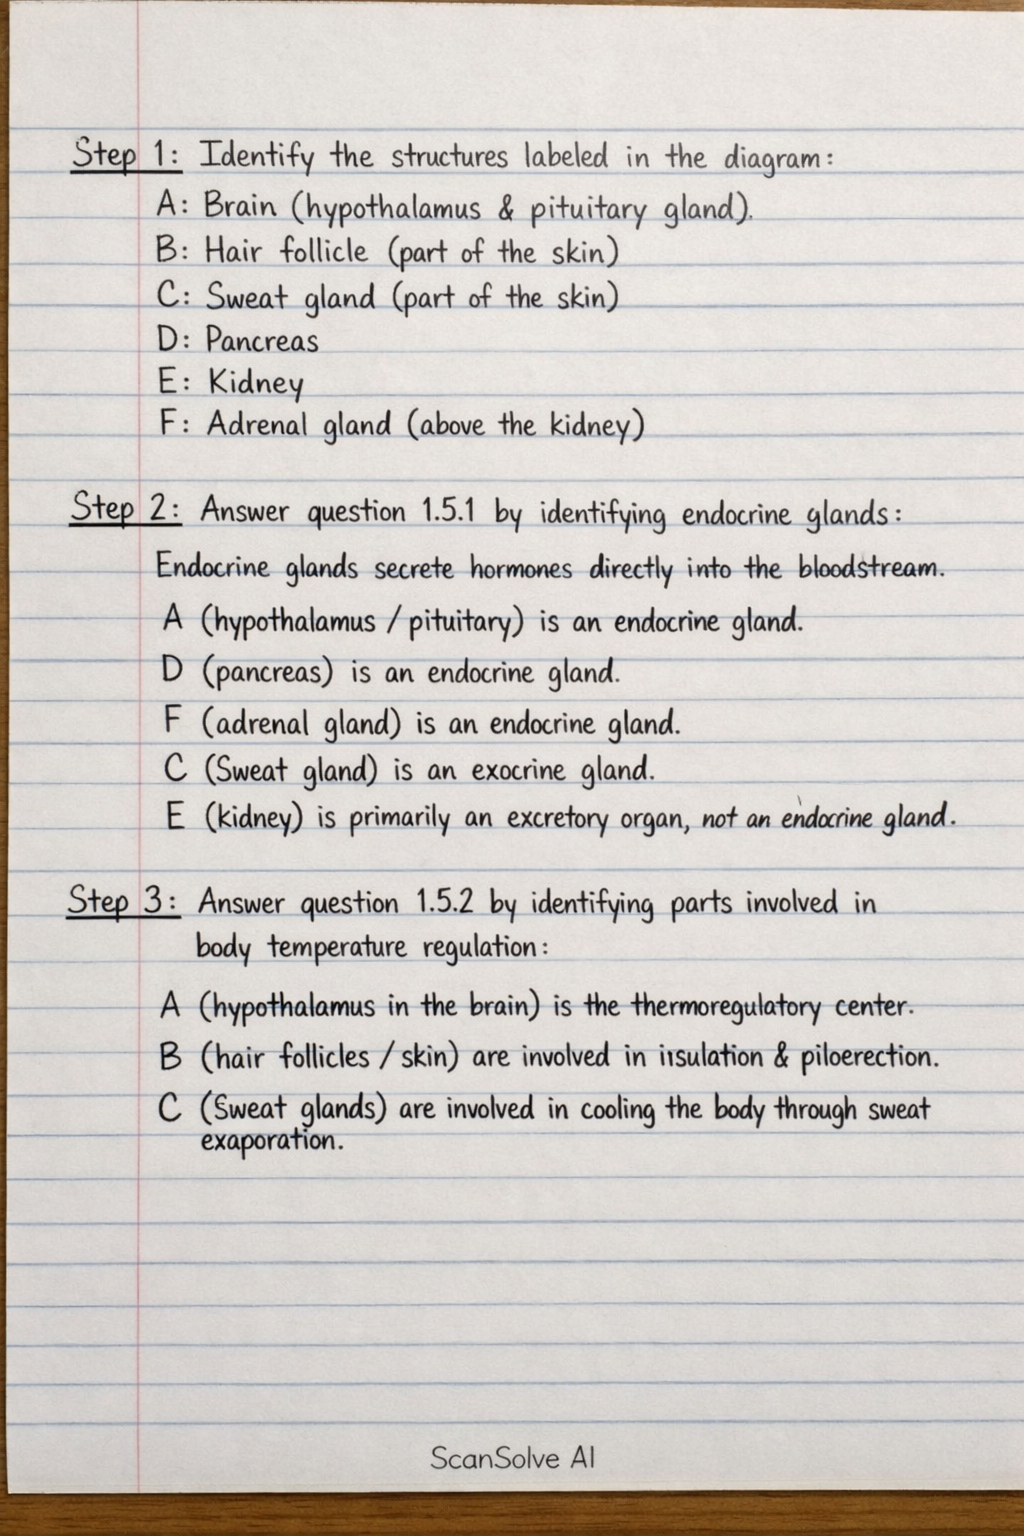 Step 1: Identify the structures labeled in the diagram:
A: Brain (hypothalamus & pituitary gland).
B: Hair follicle (part of the skin)
C: Sweat gland (part of the skin)
D: Pancreas
E: Kidney
F: Adrenal gland (above the kidney)
Step 2: Answer question 1.5.1 by identifying endocrine glands:
Endocrine glands secrete hormones directly into the bloodstream.
A (hypothalamus / pituitary) is an endocrine gland.
D (pancreas) is an endocrine gland.
F (adrenal gland) is an endocrine gland.
C (Sweat gland) is an exocrine gland.
E (kidney) is primarily an excretory organ, not an endocrine gland.
Step 3: Answer question 1.5.2 by identifying parts involved in
body temperature regulation:
A (hypothalamus in the brain) is the thermoregulatory center.
B (hair follicles / skin) are involved in iisulation & piloerection.
C (Sweat glands) are involved in cooling the body through sweat
exaporation.
ScanSolve AI